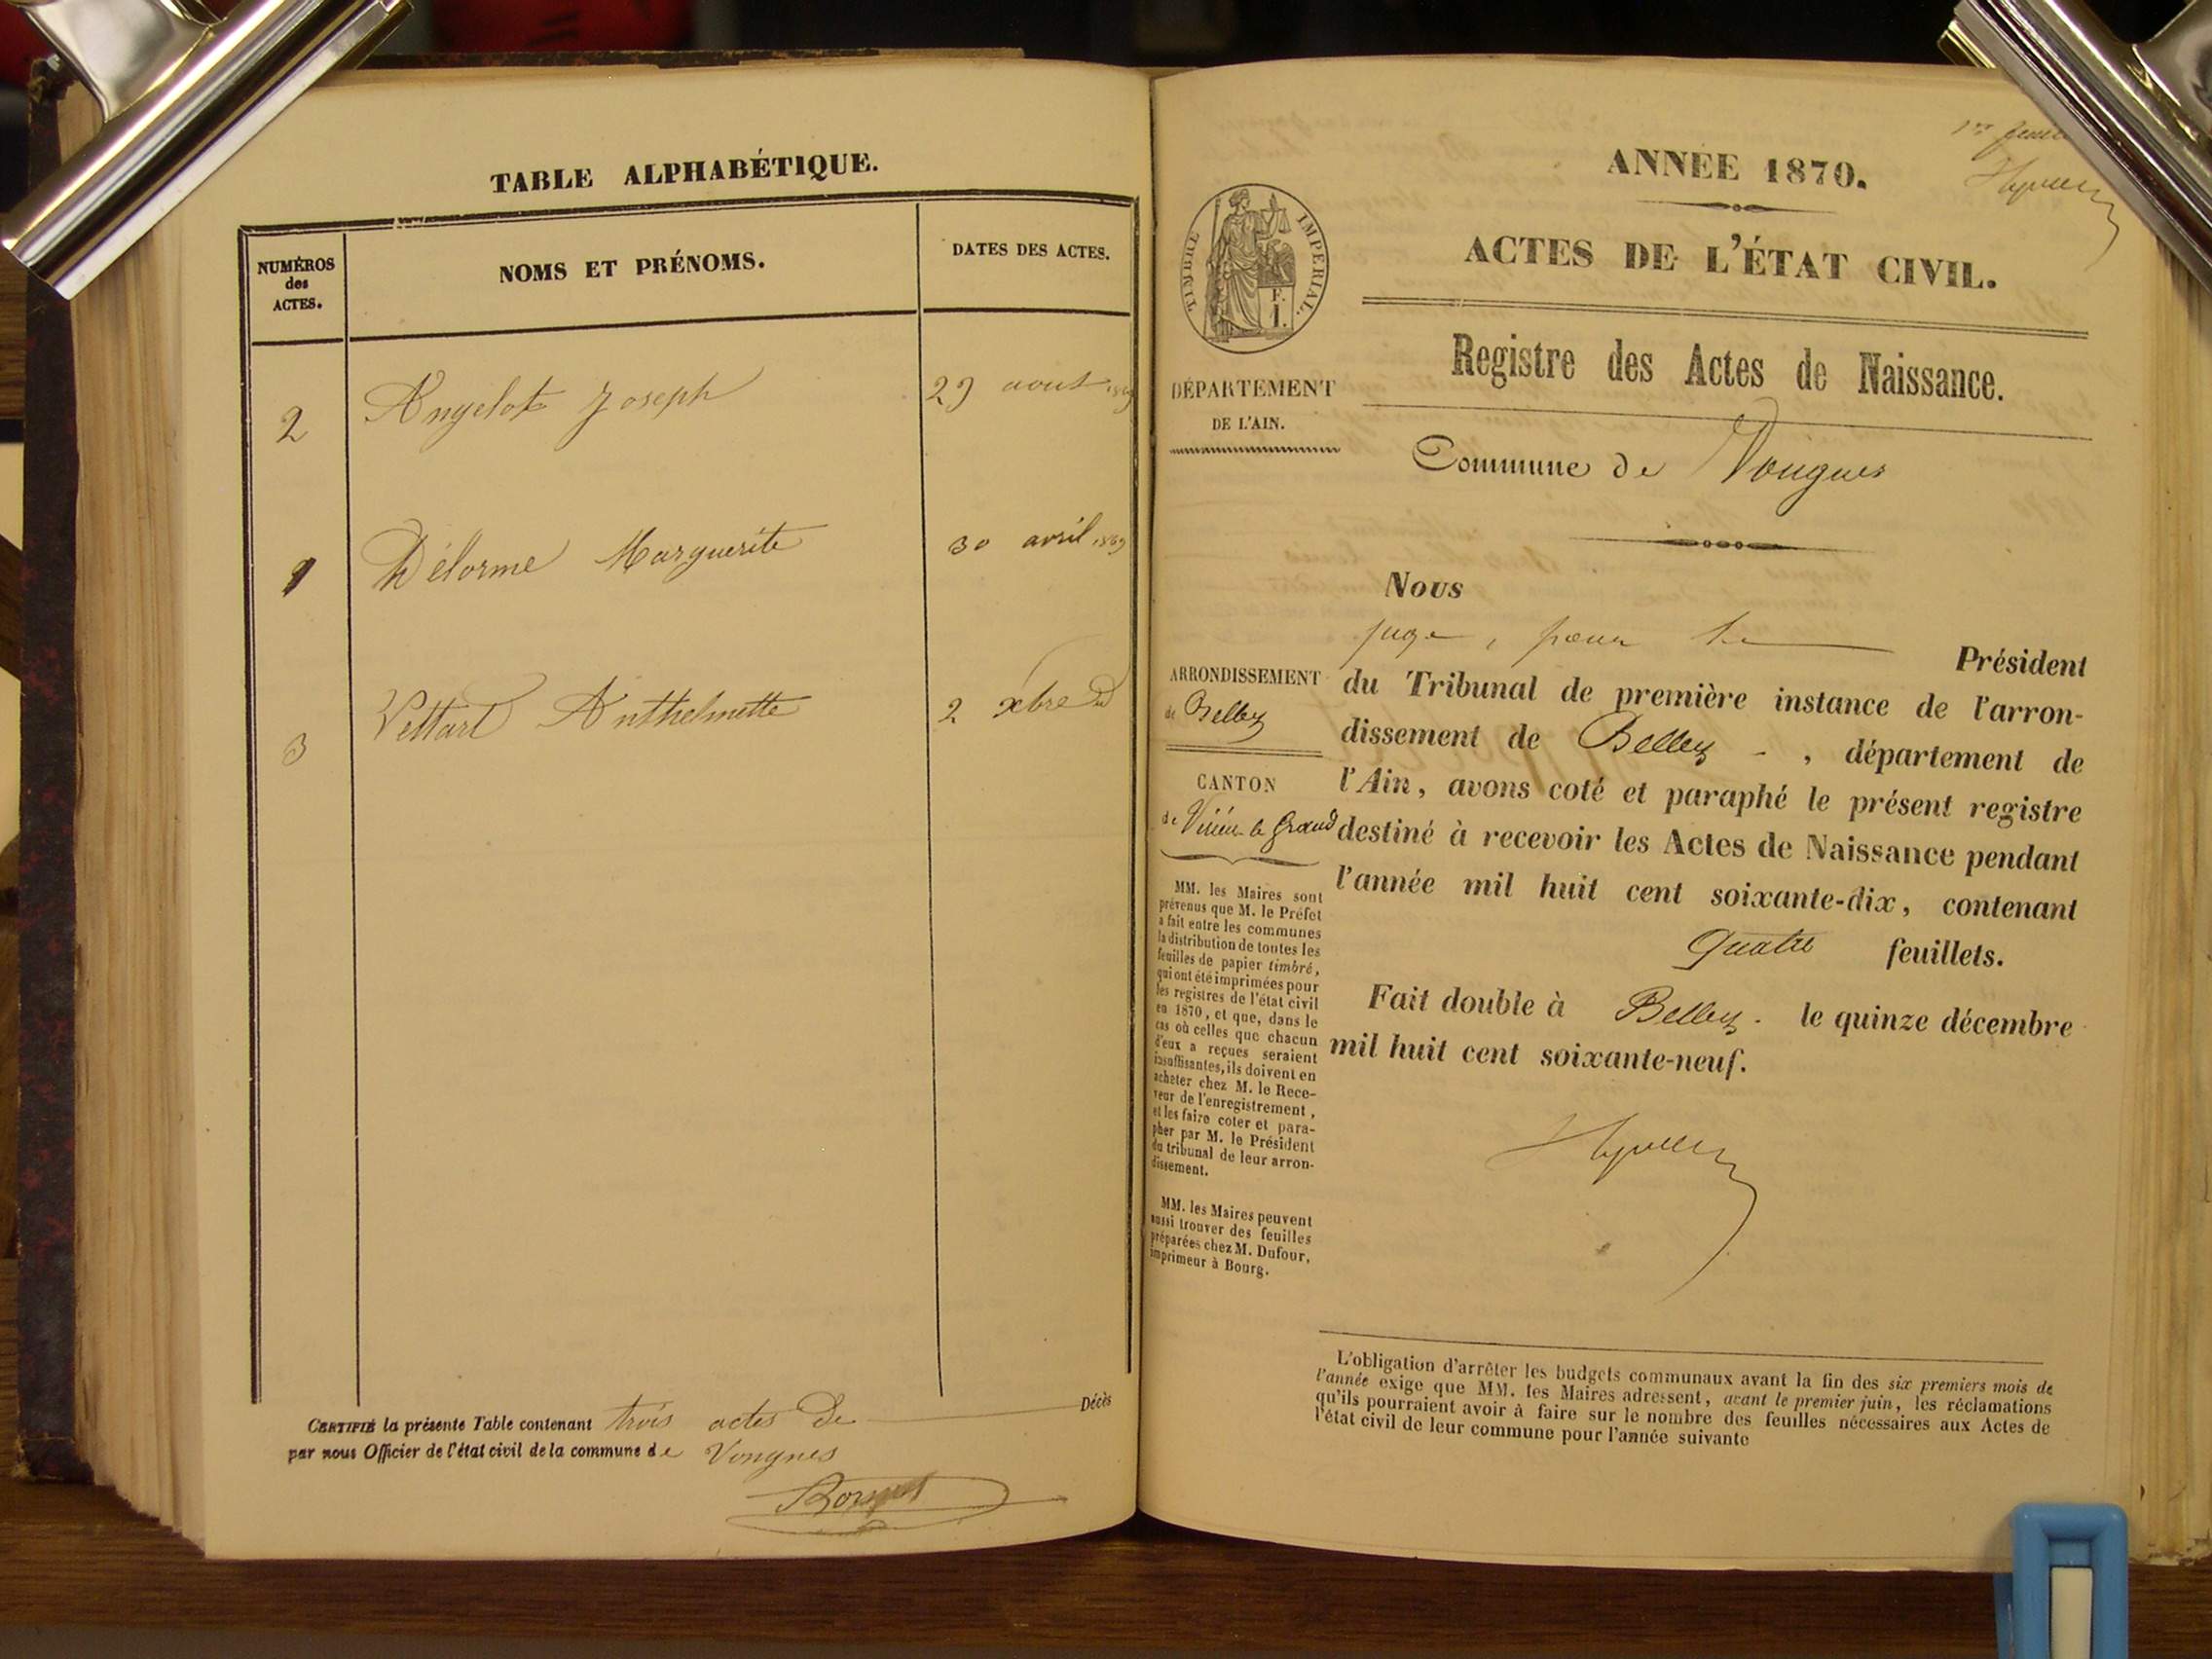 TABLE ALPHABÉTIQUE.
NUMÉROS
des
ACTES.
NOMS ET PRÉNOMS.
DATES DES ACTES.
2 Angelot Joseph 29 aout 1869
1 Délorme Marguerite 30 avril 1869
3 Vettard Anthelmette 2 xbre
CERTIFIÉ la présente Table contenant trois actes de Décès
par nous Officier de l'état civil de la commune de Vongnes
1er feuillet
ANNÉE 1870.
ACTES DE L'ÉTAT CIVIL.
TIMBRE IMPERIAL.
Registre des Actes de Naissance.
DÉPARTEMENT
DE L'AIN.
Commune de Vongnes
Nous
juge, pour le Président
ARRONDISSEMENT
de Belley
du Tribunal de première instance de l'arron-
dissement de Belley, département de
l'Ain, avons coté et paraphé le présent registre
destiné à recevoir les Actes de Naissance pendant
l'année mil huit cent soixante-dix, contenant
Quatre feuillets.
Fait double à Belley. le quinze décembre
mil huit cent soixante-neuf.
CANTON
de Virieu le Grand
MM. les Maires sont
prévenus que M. le Préfet
a fait entre les communes
la distribution de toutes les
feuilles de papier timbré,
qui ont été imprimées pour
les registres de l'état civil
en 1870, et que, dans le
cas où celles que chacun
d'eux a reçues seraient
insuffisantes, ils doivent en
acheter chez M. le Rece-
veur de l'enregistrement,
et les faire coter et para-
pher par M. le Président
du tribunal de leur arron-
dissement.
MM. les Maires peuvent
aussi trouver des feuilles
préparées chez M. Dufour,
imprimeur à Bourg.
L'obligation d'arrêter les budgets communaux avant la fin des six premiers mois de
l'année exige que MM. les Maires adressent, avant le premier juin, les réclamations
qu'ils pourraient avoir à faire sur le nombre des feuilles nécessaires aux Actes de
l'état civil de leur commune pour l'année suivante